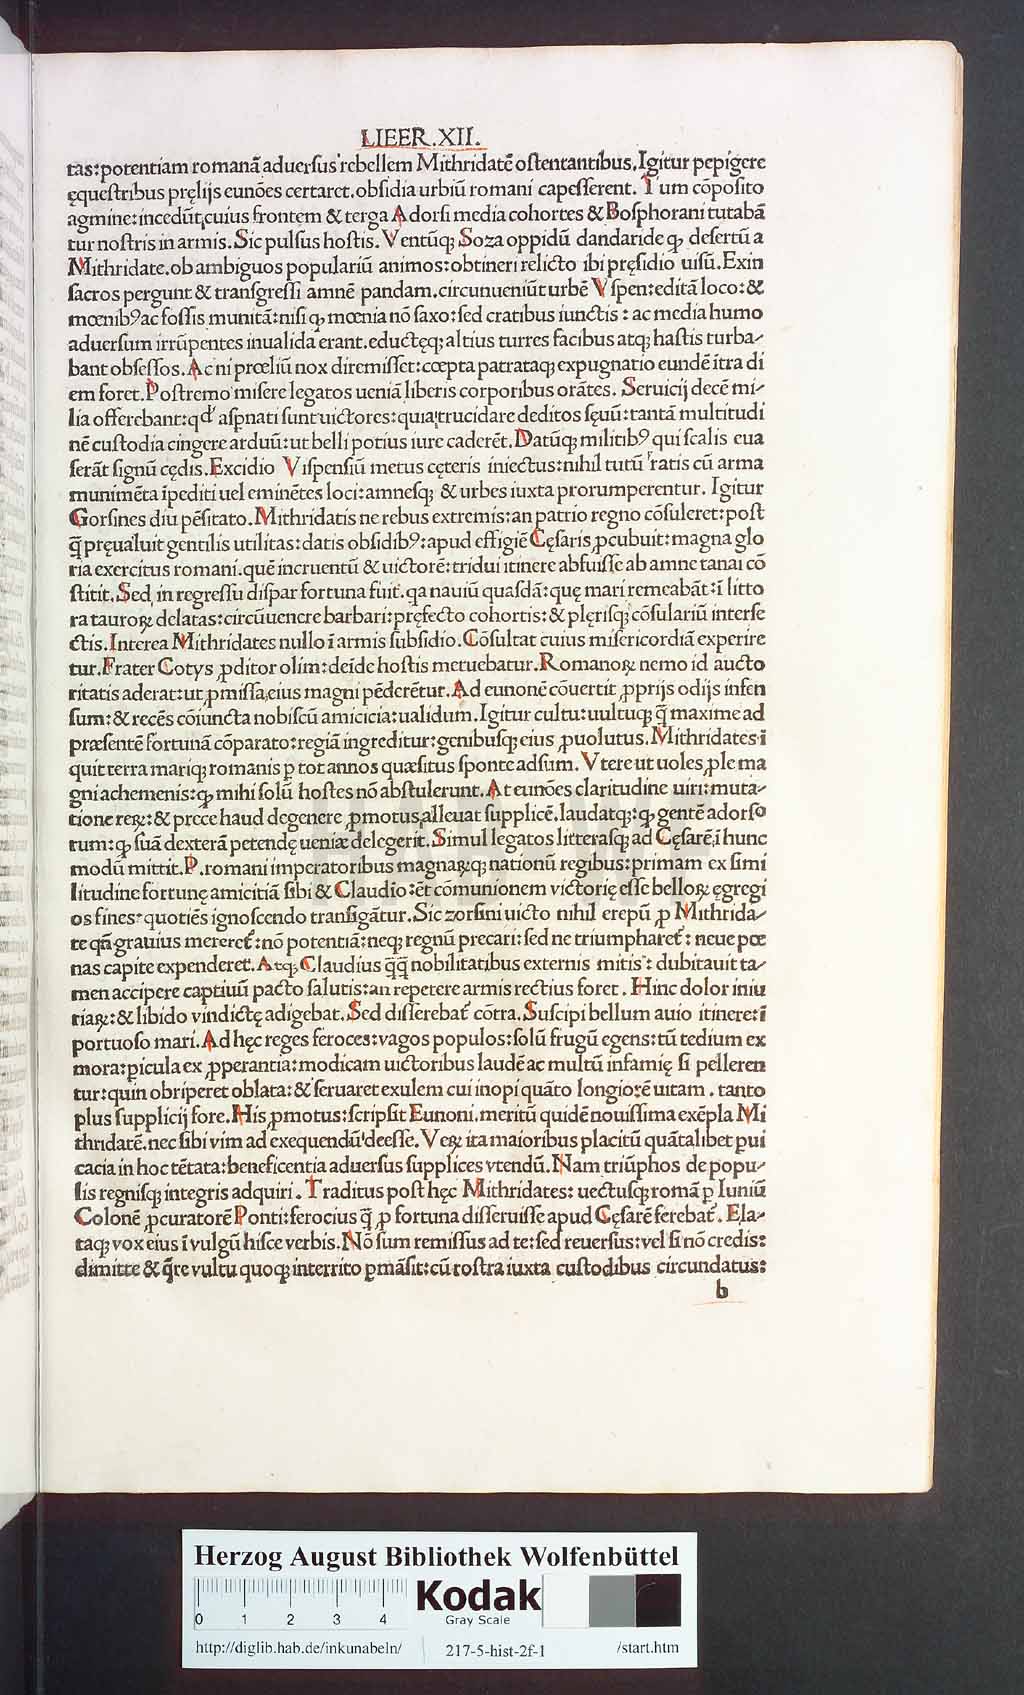 LIEER.XII.
tas:potentiam romanā aduersus rebellem Mithridatē ostentantibus.Igitur pepigere
ęquestribus pręlijs eunões certaret.obsidia urbiū romani capesserent. Tum cōposito
agmine:incedūt,cuius frontem & terga Adorsi media cohortes & Bosphorani tutabā
tur nostris in armis.Sic pulsus hostis.Ventūq; Soza oppidū dandaride ꝙ desertū a
Mithridate.ob ambiguos populariū animos:obtineri relicto ibi pręsidio uisū.Exin
sacros pergunt & transgressi amnē pandam.circunueniūt urbē Vspen:editā loco:&
mœnibꝰ ac fossis munitā:nisi ꝙ mœnia nō saxo:sed cratibus iunctis : ac media humo
aduersum irrūpentes inualida erant.eductęq; altius turres facibus atq; hastis turba-
bant obsessos.Ac ni prœliū nox diremisset:cœpta patrataq; expugnatio eundē ītra di
em foret.Postremo misere legatos ueniā liberis corporibus orātes. Seruicij decē mi-
lia offerebant:qd' aspnati sunt uictores:quia trucidare deditos sęuū:tantā multitudi
nē custodia cingere arduū:ut belli potius iure caderēt.Datūq; militibꝰ qui scalis eua
serāt signū cędis.Excidio Vispensiū metus cęteris iniectus:nihil tutū ratis cū arma
munimēta īpediti uel eminētes loci:amnesq; & urbes iuxta prorumperentur. Igitur
Gorsines diu pēsitato.Mithridatis ne rebus extremis:an patrio regno cōsuleret:post
q̄ pręualuit gentilis utilitas:datis obsidibꝰ:apud effigiē Cęsaris ꝓcubuit:magna glo
ria exercitus romani.quē incruentū & uictorē:tridui itinere abfuisse ab amne tanai cō
stitit.Sed in regressu dispar fortuna fuit.qa nauiū quasdā:quę mari remeabāt:ī litto
ra tauroꝝ delatas:circūuenere barbari:pręfecto cohortis:& plęrisq; cōsulariū interfe
ctis.Interea Mithridates nullo ī armis subsidio.Cōsultat cuius misericordiā experire
tur.Frater Cotys ꝓditor olim:deīde hostis metuebatur.Romanoꝝ nemo id aucto
ritatis aderat:ut ꝓmissa eius magni pēderētur.Ad eunonē cōuertit ꝓprijs odijs infen
sum:& recēs cōiuncta nobiscū amicicia:ualidum.Igitur cultu:uultuq; q̄ maxime ad
præsentē fortunā cōparato:regiā ingreditur:genibusq; eius ꝓuolutus.Mithridates ī
quit terra mariq; romanis ꝑ tot annos quæsitus sponte adsum.Vtere ut uoles ꝓle ma
gni achemenis:ꝙ mihi solū hostes nō abstulerunt.At eunões claritudine uiri:muta-
tione reꝝ:& prece haud degenere ꝓmotus alleuat supplicē.laudatq; ꝙ gentē adorso
rum:ꝙ suā dexterā petendę ueniæ delegerit.Simul legatos litterasq; ad Cęsarē ī hunc
modū mittit.P.romani imperatoribus magnaꝝq; nationū regibus:primam ex simi
litudine fortunę amicitiā sibi & Claudio:ēt cōmunionem victorię esse belloꝝ ęgregi
os fines:quotiēs ignoscendo transigātur.Sic zorsini uicto nihil erepū ꝑ Mithrida-
te qn̄ grauius mereret':nō potentiā:neq; regnū precari:sed ne triumpharet': neue pœ
nas capite expenderet.Atq; Claudius q̄q̄ nobilitatibus externis mitis : dubitauit ta-
men accipere captiuū pacto salutis:an repetere armis rectius foret . Hinc dolor iniu
riaꝝ:& libido vindictę adigebat.Sed disserebat' cōtra.Suscipi bellum auio itinere:ī
portuoso mari.Ad hęc reges feroces:vagos populos:solū frugū egens:tū tedium ex
mora:ꝑicula ex ꝓperantia:modicam uictoribus laudē ac multū infamię si pelleren
tur:quin obriperet oblata:& seruaret exulem cui inopi quāto longiorē uitam . tanto
plus supplicij fore.His ꝓmotus:scripsit Eunoni.meritū quidē nouissima exēpla Mi
thridatē.nec sibi vim ad exequendū deesse.Veꝝ ita maioribus placitū quātalibet ꝑui
cacia in hoc tētata:beneficentia aduersus supplices vtendū.Nam triūphos de popu-
lis regnisq; integris adquiri.Traditus post hęc Mithridates: uectusq; romā ꝑ Iuniū
Colonē ꝓcuratorē Ponti:ferocius q̄ ꝓ fortuna disseruisse apud Cęsarē ferebat'.Ela-
taq; vox eius ī vulgū hisce verbis.Nō sum remissus ad te:sed reuersus:vel si nō credis:
dimitte & q̄re vultu quoq; interrito ꝑmāsit:cū rostra iuxta custodibus circundatus:
b
Herzog August Bibliothek Wolfenbüttel
0 1 2 3 4
Kodak
Gray Scale
http://diglib.hab.de/inkunabeln/ 217-5-hist-2f-1 /start.htm